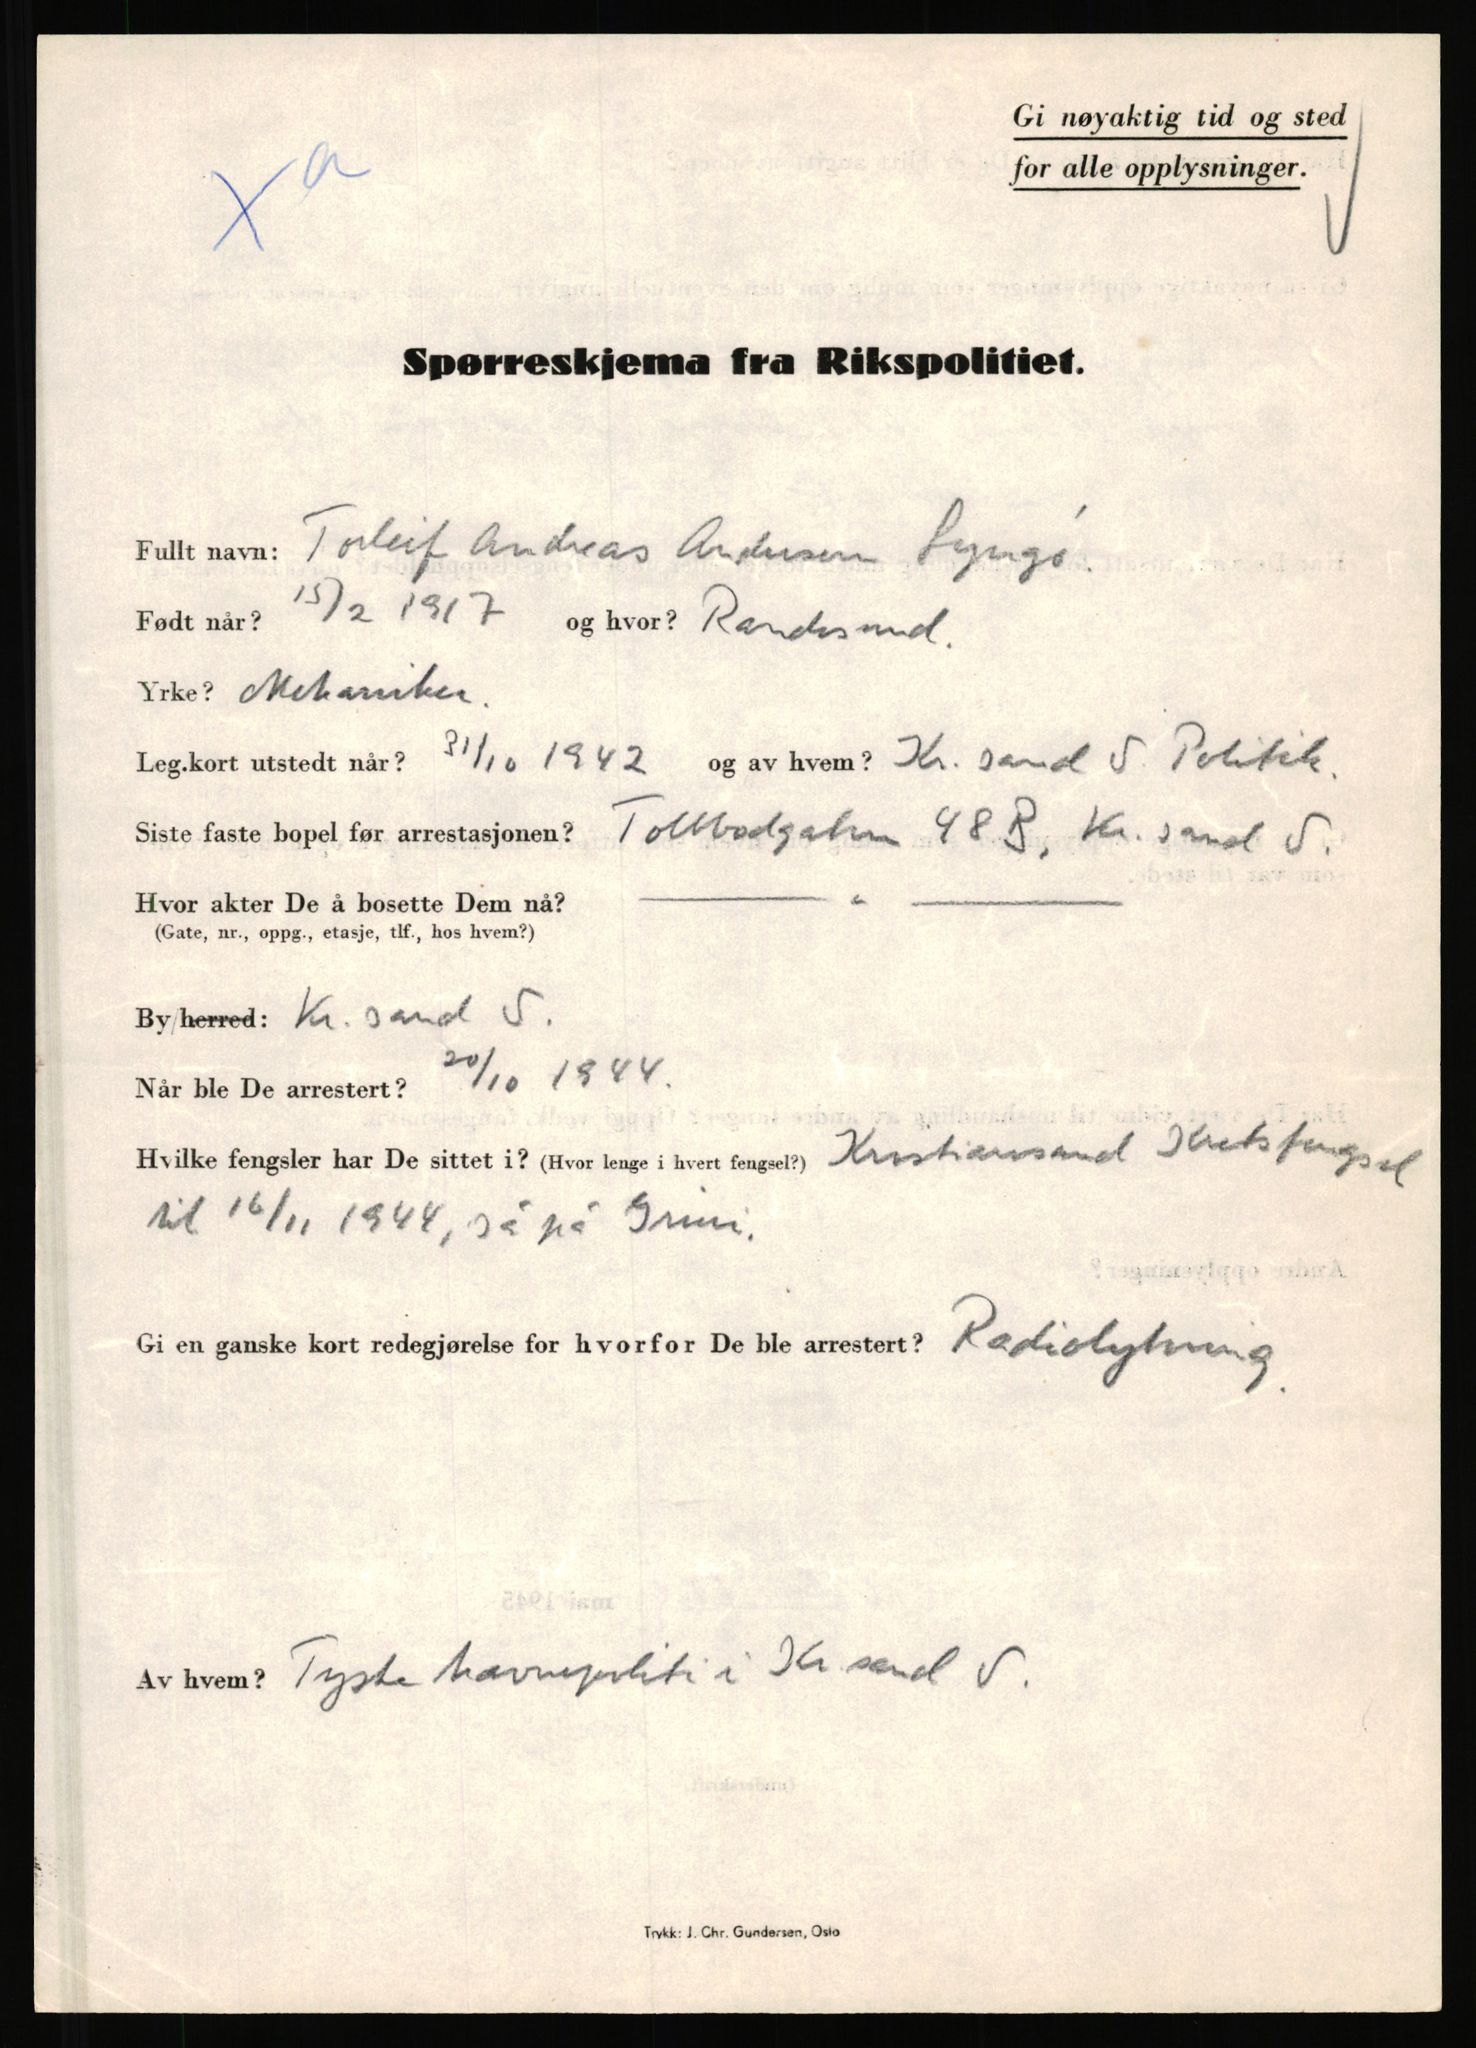 Gi nøyaktig tid og sted
for alle opplysninger.
X a
Spørreskjema fra Rikspolitiet.
Fullt navn: Torleif Andreas Andersen Lyngö.
Født når? 15/2 1917 og hvor? Randesund.
Yrke? Mekaniker.
Leg.kort utstedt når? 31/10 1942 og av hvem? Kr. sand S. Politik.
Siste faste bopel før arrestasjonen? Tollbodgaten 48 B, Kr. sand S.
Hvor akter De å bosette Dem nå? — " —
(Gate, nr., oppg., etasje, tlf., hos hvem?)
By/herred: Kr. sand S.
Når ble De arrestert? 20/10 1944.
Hvilke fengsler har De sittet i? (Hvor lenge i hvert fengsel?) Kristiansand Kretsfengsel
til 16/11 1944, så på Grini.
Gi en ganske kort redegjørelse for hvorfor De ble arrestert? Radiolytning.
Av hvem? Tyske havnepoliti i Kr. sand S.
Trykk: J. Chr. Gundersen, Oslo